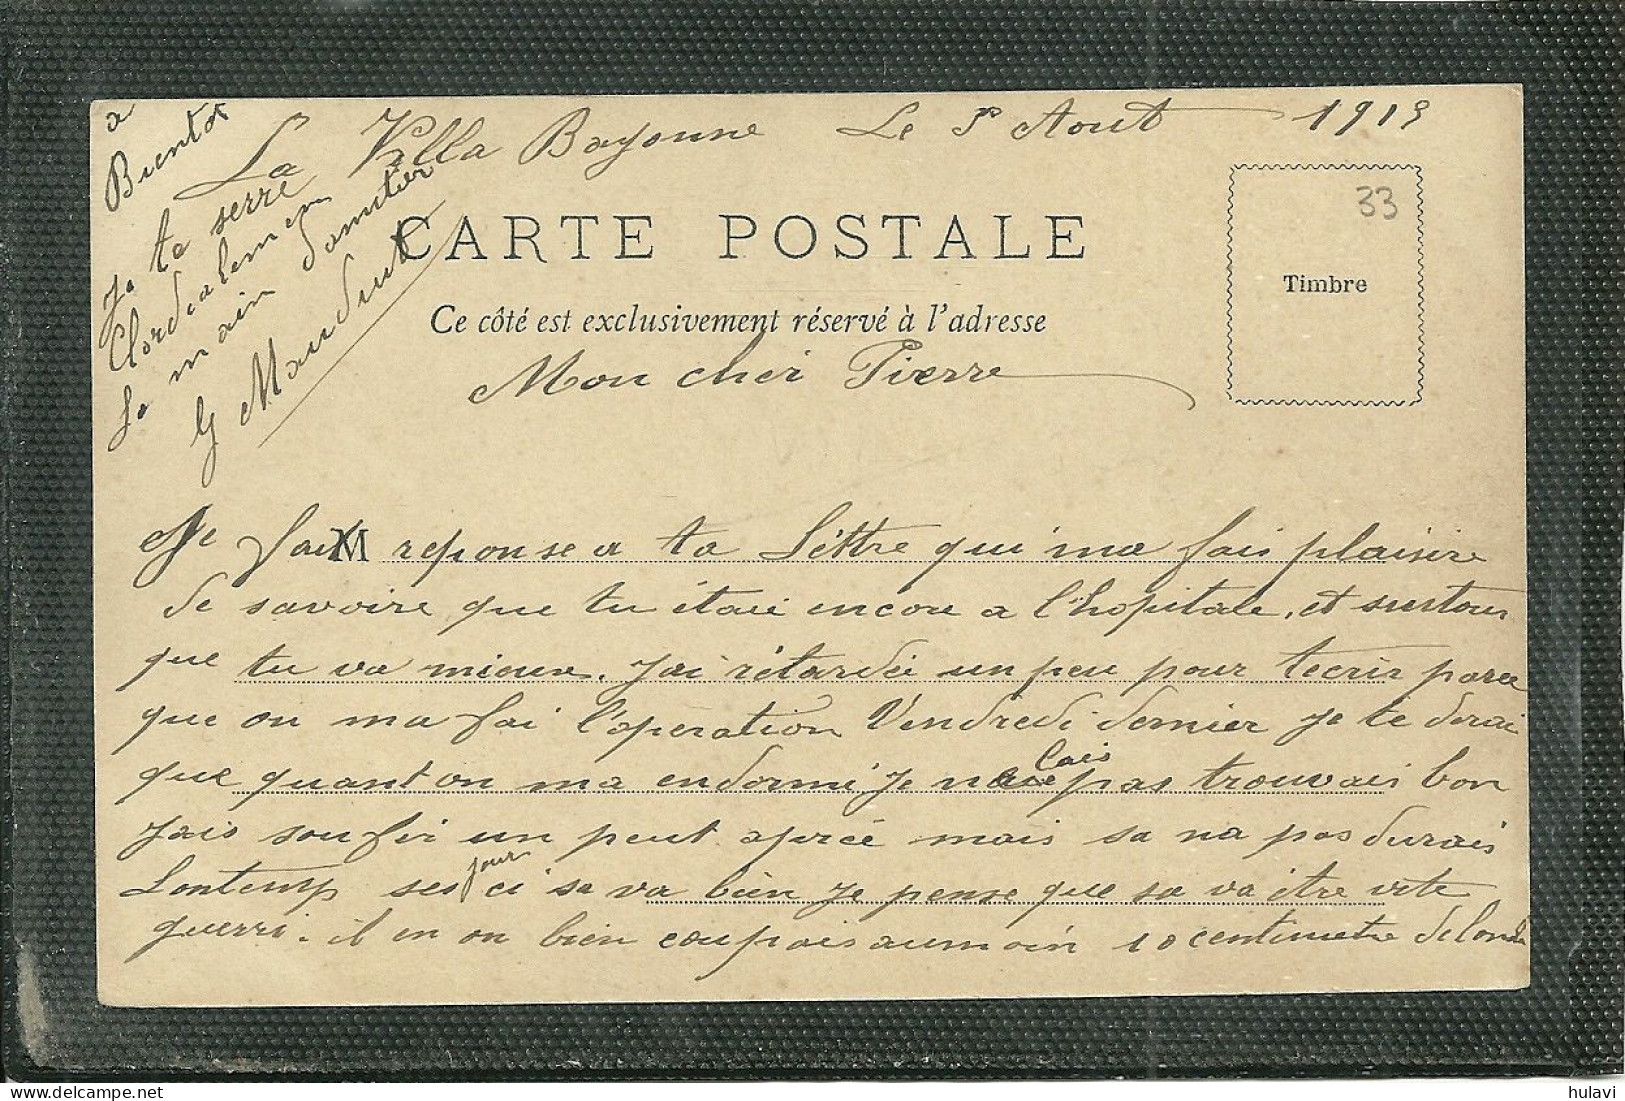 La Villa Bayonne Le 5 Aout 1913
33
CARTE POSTALE
Timbre
Ce côté est exclusivement réservé à l'adresse
Mon cher Pierre
Je fai M reponse a ta Léttre qui ma fais plaisire
de savoire que tu étai encore a l'hopitale, et surtous
que tu va mieux. J'ai rétardée un peu pour tecrir parce
que on ma fai l'operation Vendredi dernier je te dirai
que quant on ma endormi je nalais pas trouvais bon
Jais soufir un peut aprée mais sa na pas durais
Lontemp ses jour ci sa va bien je pense que sa va être vite
guerri. il en on bien coupais aumoin 10 centimetre de long
a
Bientot
Je te serre
Cordialemen
La main
G Maudut
hulavi